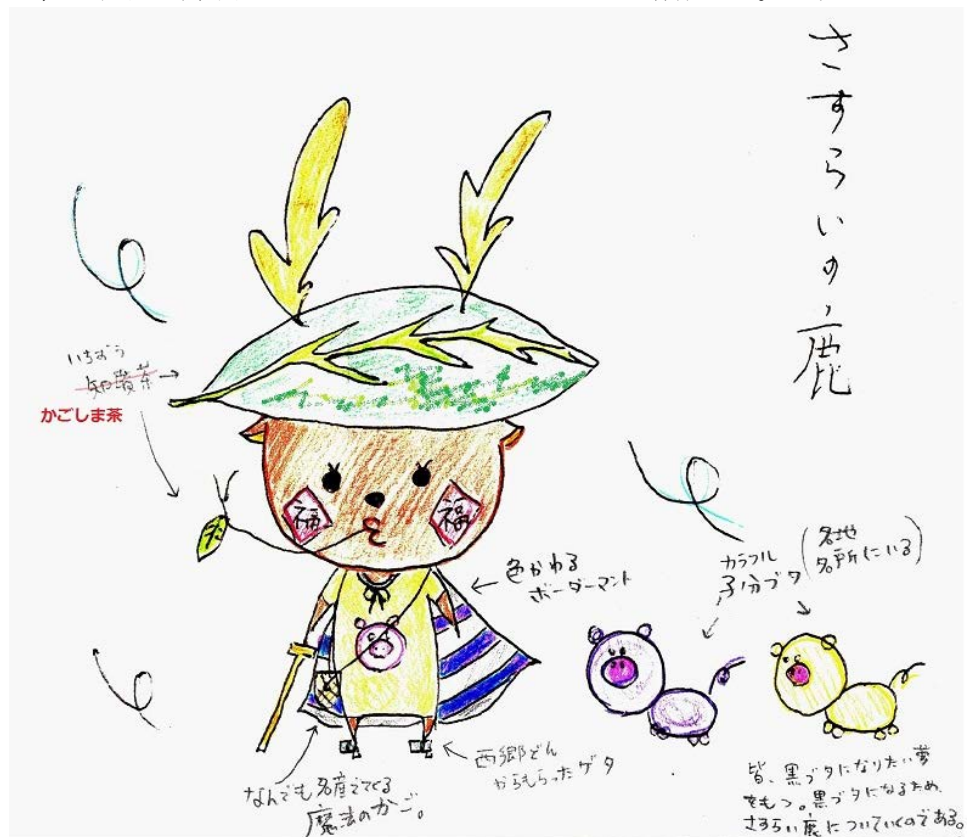 さすらいの鹿
いちおう
知覧茶
かごしま茶
福
福
色かわる
ボーダーマント
カラフル
子分ブタ
(各地
名所にいる)
西郷どん
からもらったゲタ
なんでも名産でてくる
魔法のかご。
皆、黒ブタになりたい夢
をもつ。黒ブタになるため、
さすらい鹿についていくのである。